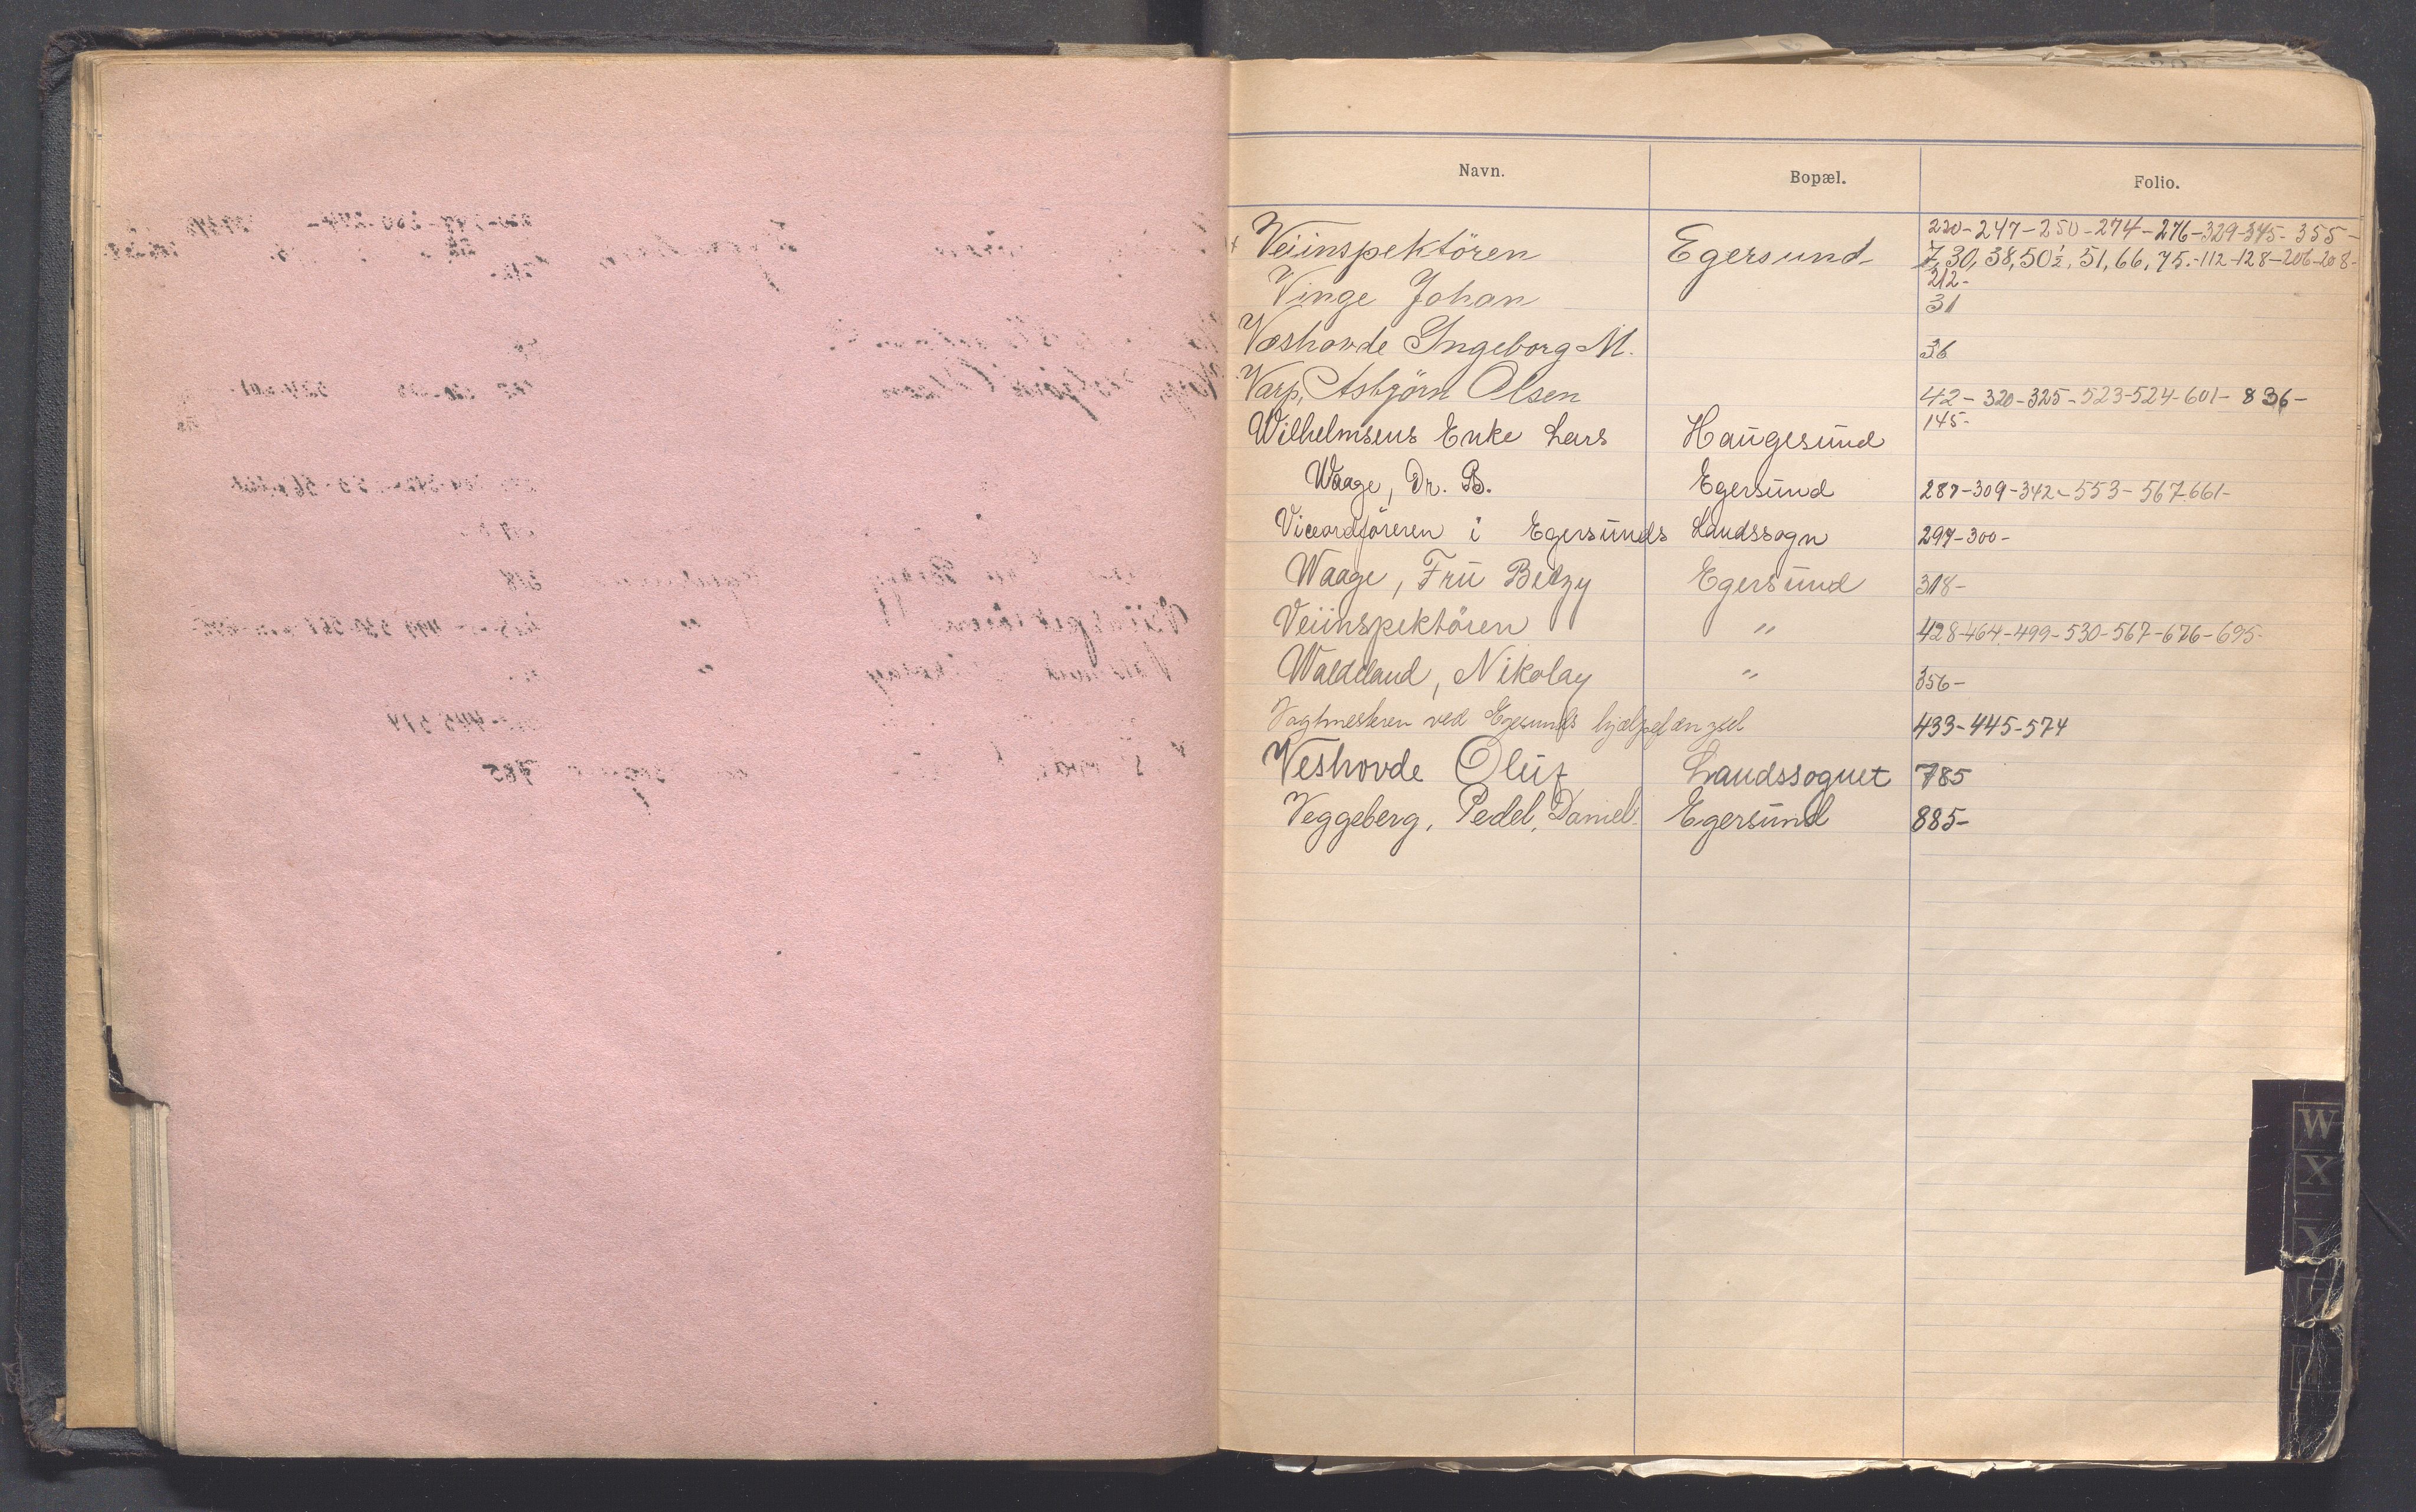 Navn. Bopæl. Folio.
220-247-250-274-276-329-345-355-
+ Veiinspektören Egersund 7, 30, 38, 50½, 51, 66, 75.-112-128-206-208-
212-
Vinge Johan 31
Væshovde Ingeborg M. 36
Varp, Asbjörn Olsen 42-320-325-523-524-601-836-
Wilhelmsens Enke Lars Haugesund 145-
Waage, Dr. B. Egersund 287-309-342-553-567-661-
Viceordföreren i Egersunds Landssogn 297-300-
Waage, Fru Betzy Egersund 318-
Veiinspektören " 428-464-499-530-567-676-695-
Waldeland, Nikolay " 356-
Vagtmesteren ved Egersunds hjælpefængsel 433-445-574
Veshovde Oluf Landssognet 785
Veggeberg, Pedel, Daniel Egersund 885-
W
X
Y